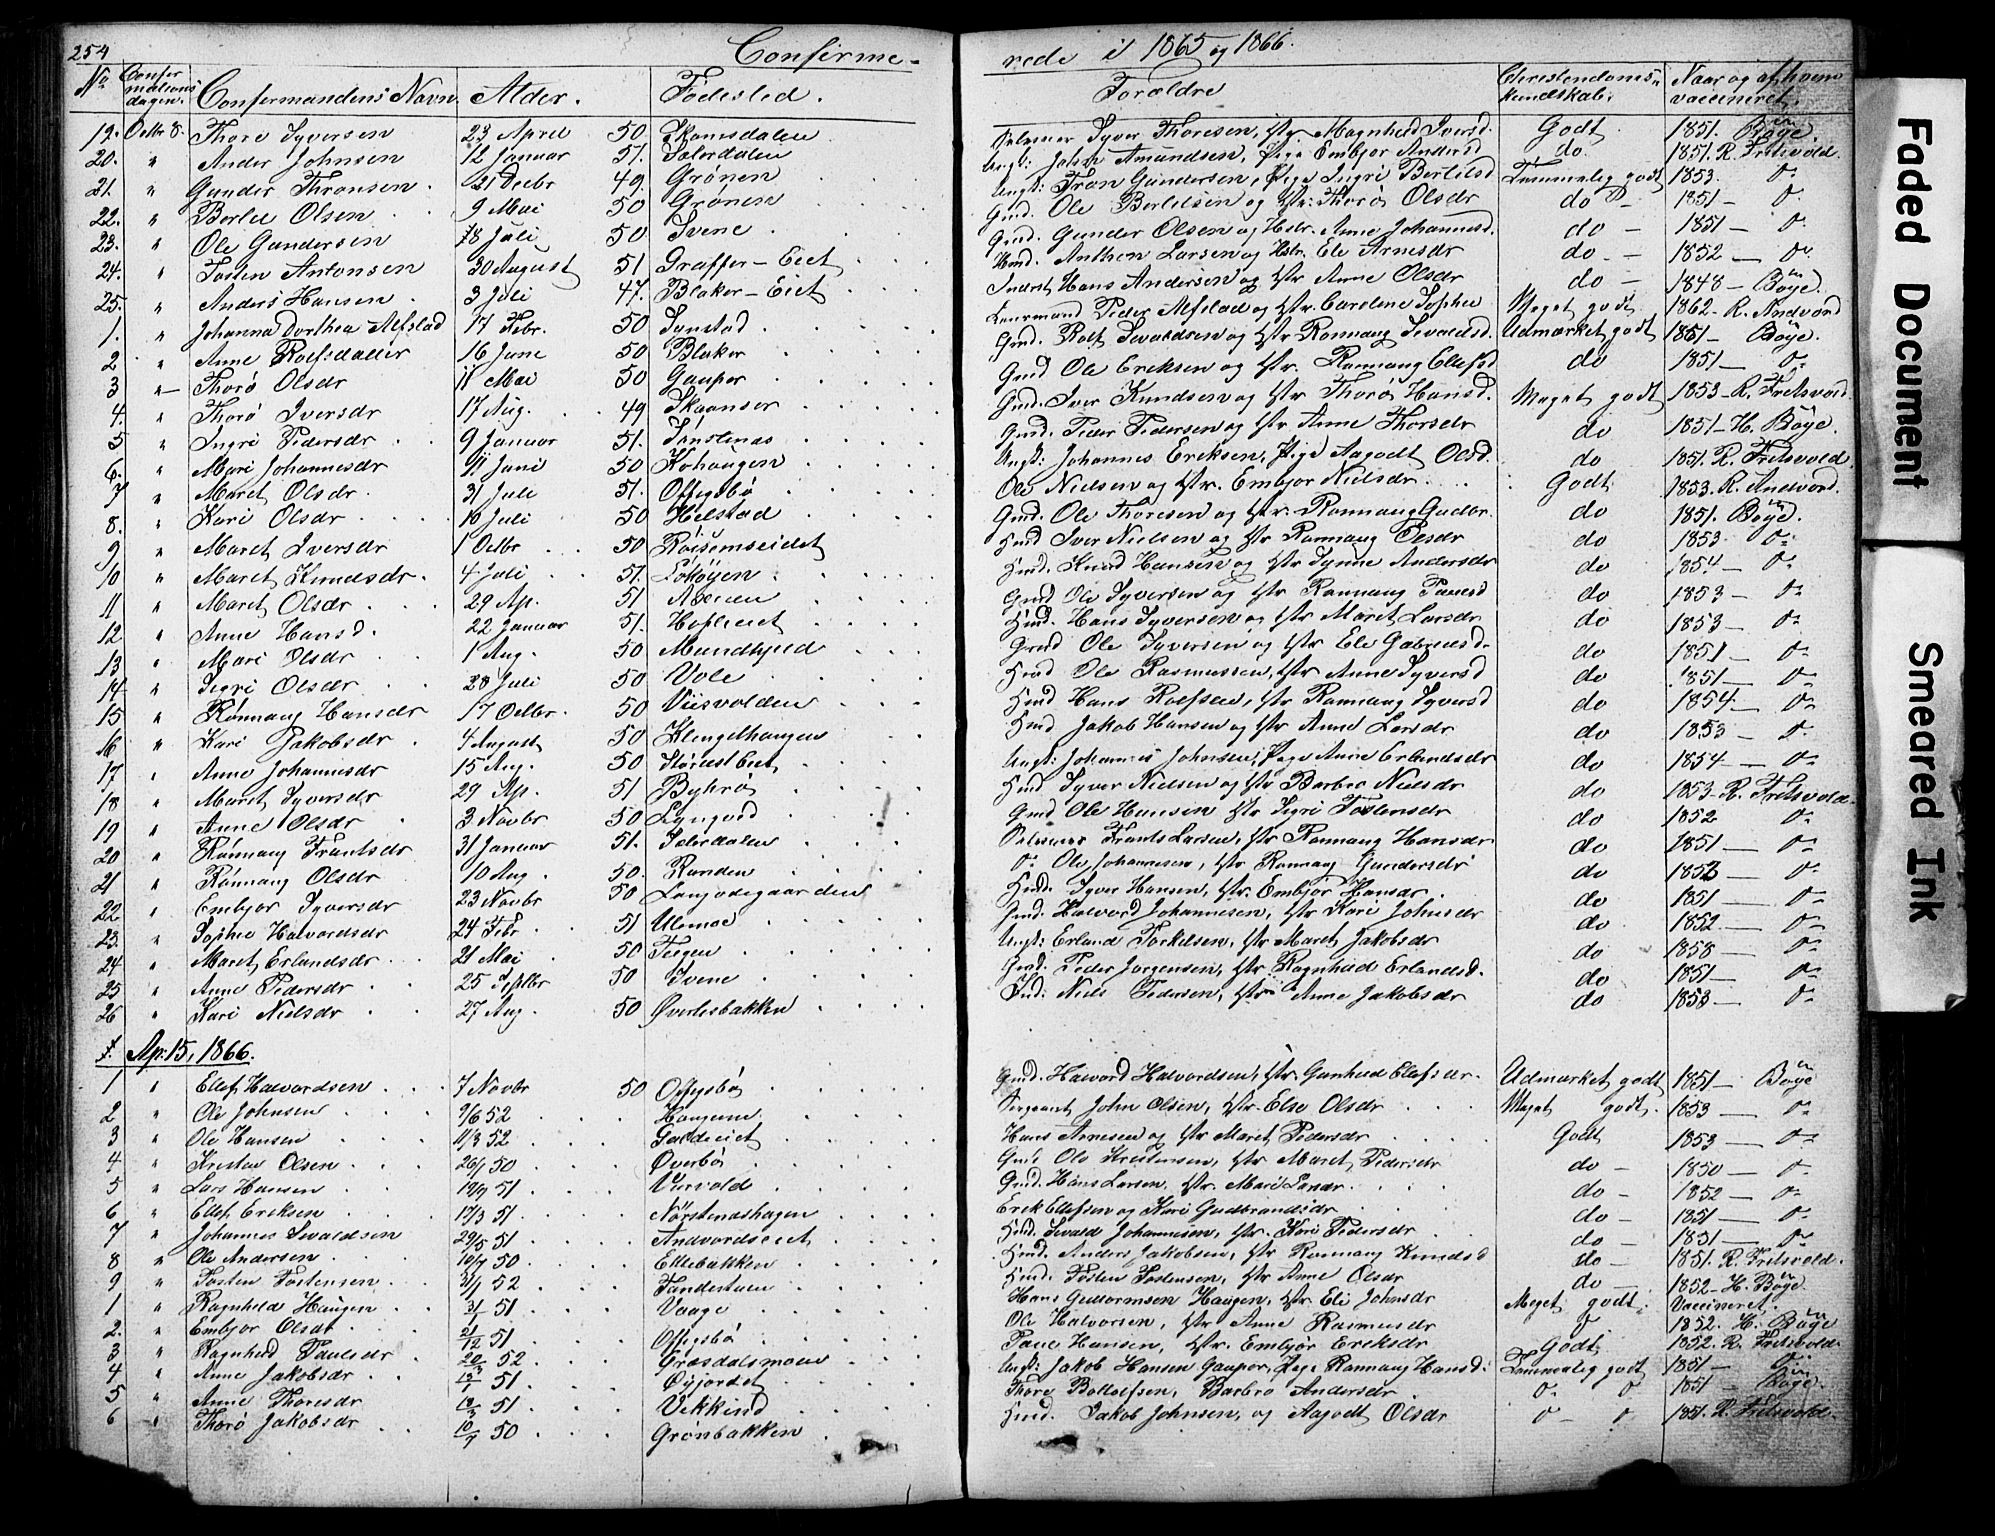 254 Confirme- rede i 1865 og 1866.
No Confirmationsdagen. Confirmandens Navn. Alder. Fødested. Forældre Christendoms-kundskab. Naar og af hvem vaccineret.
19. Octbr 8. Thore Syversen 23 April 50 Skamsdalen Selveier Syver Thoresen, Hstr Magnhild Iversd. Godt 1851. Bøye.
20. " Anders Johnsen 12 Januar 51. Sælerdalen Ungk: John Amundsen, Pige Embjør Andersd do. 1851. R. Fretsvold.
21. " Gunder Thronsen 21 Decbr 49. Grønen Ungk: Tron Gundersen, Pige Sigri Bertelsd Temmelig godt 1853. do
22. " Bertel Olsen 9 Mai 50 Grønen Gmd. Ole Bertelsen og Hstr. Thorø Olsdr do - 1851 - do
23. " Ole Gundersen 18 Juli 50 Svene Gmd. Gunder Olsen og Hstr. Anne Johannesd. do - 1851 - do
24. " Tosten Antonsen 30 August 51 Graffer-Eiet Hmd. Anthon Larsen og Hstr. Eli Arnesdr do - 1852 - do
25. " Anders Hansen 3 Juli 47. Blaker-Eiet Inderst Hans Andersen og Hstr Anne Olsdr do - 1848 - Bøye.
1. " Johanna Dorthea Alfstad 17 Febr. 50 Synstad Lensmand Peder Alfstad og Hstr. Caroline Sophie Meget godt 1862. R. Andvord
2 " Anne Rolfsdatter 16 Juni 50 Blaker Gmd. Rolf Sevaldsen og Hstr Rønnaug Sevaldsd. Udmærket godt 1851 - Bøye.
3 " Thorø Olsdr 11 Mai 50 Gaupar Gmd Ole Eriksen og Hstr. Rønnaug Ellefsd do 1851 - do
4. " Thorø Iversdr 17 Aug. 49 Skaanser Gmd. Iver Knudsen og Hstr Thorø Hansd. Meget godt 1853 - R. Fretsvold.
5 " Ingri Pedersdr 9 Januar 51. Sønstenas Gmd. Peder Pedersen og Hstr Anne Thorsdr do 1851 - H. Bøye.
6. " Mari Johannesdr 11 Juni 50 Kohaugen Ungk: Johannes Eriksen, Pige Aagodt Olsd. do 1851. R. Fretsvold
7 " Maret Olsdr. 31 Juli 51. Offigsbø Ole Nielsen og Hstr. Embjør Nielsdr. Godt 1853. R. Andvord.
8. " Kari Olsdr 10 Juli 50 Helstad Gmd. Ole Thoresen og Hstr. Rønnaug Gudbr. do 1851. Bøye.
9 " Maret Iversdr 1 Octbr 50 Hmd Iver Nielsen og Hstr Rønnaug Olsdr do 1853 - do
10 " Maret Knudsdr. 4 Juli 51. Løkøyen Hmd. Knud Hansen og Hstr Synne Andersdr do 1854 - do
11 " Maret Olsdr 29 Ap. 51 Gmd Ole Syversen og Hstr Rønnaug Paulsd do 1853 - do
12. " Anne Hansd. 22 Januar 51. Hofseiet Hmd. Hans Syversen og Hstr Maret Larsdr do 1853 - do
13 " Mari Olsdr 1 Aug. 50 Mundhjeld Gmd Ole Syversen og Hstr Eli Gabrielsd. do 1851 - do
14 " Sigri Olsdr 28 Juli 50 Vole Hmd Ole Rasmussen, Hstr Anne Syversd do 1851 - do
15 " Rønnaug Hansdr 17 Octbr. 50 Viisvolden Hmd Hans Rolfsen, Hstr Rønnaug Syversd do 1854. - do
16 " Kari Jakobsdr 4 August 50 Klengelhaugen Hmd Jakob Hansen og Hstr Anne Larsdr do 1853 - do
17 " Anne Johannesdr 15 Aug. 50 Ungk: Johannes Johnsen, Pige Anne Erlandsdr do 1854 - do
18 " Maret Syversdr 29 Ap. 51 Byhrø Hmd Syver Nielsen og Hstr Barbro Nielsdr do 1853 - R. Fretsvold.
19 " Anne Olsdr 3 Novbr 50 Lyngved Gmd Ole Hansen Hstr Sigri Tostensdr do 1852 do
20 " Rønnaug Frantsdr 31 Januar 51. Sælerdalen Selveier Frants Larsen, Hstr Rønnaug Hansdr do 1851 - do
21 " Rønnaug Olsdr 10 Aug. 50. Randen do Ole Johannesen, Hstr Rønnaug Gundersdr do 1852 - do
22 " Embjør Syversdr 23 Novbr 50 Hmd. Syver Hansen, Hstr. Embjør Hansdr. do 1851 - do
23. " Sophie Halvordsdr 24 Febr. 51 Ulemoe Gmd. Halvord Johannesen, Hstr Kari Johnsdr do 1852. - do
24 " Maret Erlandsdr 21 Mai 50 Teigen Ungk: Erland Torkelsen, Hstr Maret Jakobsdr do 1858 - do
25 " Anne Pedersdr 25 Septbr 50 Svene Gmd. Peder Jørgensen, Hstr Ragnhild Erlandsd. do 1851 - do
26 " Kari Nielsdr 27 Aug. 50 Øverlesbakken Ind: Niels Pedersen, Hstr Anne Jakobsdr do 1853 - do
Ap. 15, 1866.
1 " Ellef Halvordsen 7 Novbr 50 Offigsbø Gmd. Halvord Halvordsen, Hstr. Gunhild Elefsdr. Udmærket godt 1851 - Bøye
2 " Ole Johnsen 9/6 52 Haugene Sergeant John Olsen, Hstr. Else Olsdr Meget godt. 1853 - do
3 " Ole Hansen 11/3 52 Galdeeiet Hans Arnesen og Hstr Maret Pedersdr Godt 1853 - do
4 " Kristen Olsen 26/1 50 Øverbø Gmd Ole Kristensen, Hstr Maret Pedersdr do - 1850 - do
5 " Lars Hansen 19/9 51 Viirvold Gmd. Hans Larsen, Hstr. Mari Larsdr do - 1852 - do
6 " Ellef Eriksen 17/3 51 Nørstenashagen Erik Ellefsen og Kari Gudbrandsdr do - 1851 - do
7 " Johannes Sevaldsen 29/5 51 Andvordseiet Hmd. Sevald Johannesen, Hstr. Kari Pedersdr do - 1851 - do
8 " Ole Andersen 10/9 50 Ellebakken Hmd. Anders Jakobsen, Hstr Rønnaug Knudsd do - 1851. R. Fretsvold.
9 " Tosten Tostensen 31/1 52 Sandestuen Hmd. Tosten Tostensen, Hstr Anne Olsdr do - 1852 - H. Bøye
1 " Ragnhild Haugen 3/1 51 Vaage Hans Guttormsen Haugen, Hstr. Eli Johnsdr Meget godt. Vaccineret.
2. " Embjør Olsdr 21/12 51 Offigsbø Ole Halvorsen, Hstr Anne Rasmusdr do 1852. H. Bøye
3 " Ragnhild Paulsdr 20/3 52 Grøsdalsmoen Paul Hansen, Hstr. Embjør Eriksdr Godt 1852. R. Fretsvold.
4 " Anne Jakobsdr 12/1 51 Øyjordet Ungk: Jakob Hansen Gaupar, Pige Rønnaug Hansd. Temmelig godt 1851 - do
5 " Anne Thoresdr 12/3 51 Vekkind Thore Bottolfsen, Barbro Andersdr do do 1851 - Bøye
6 " Thorø Jakobsdr 10/9 50 Grønbakken Hmd. Jakob Johnsen, og Aagodt Olsdr do - do 1851. R. Fretsvold.
Faded Document
Smeared Ink